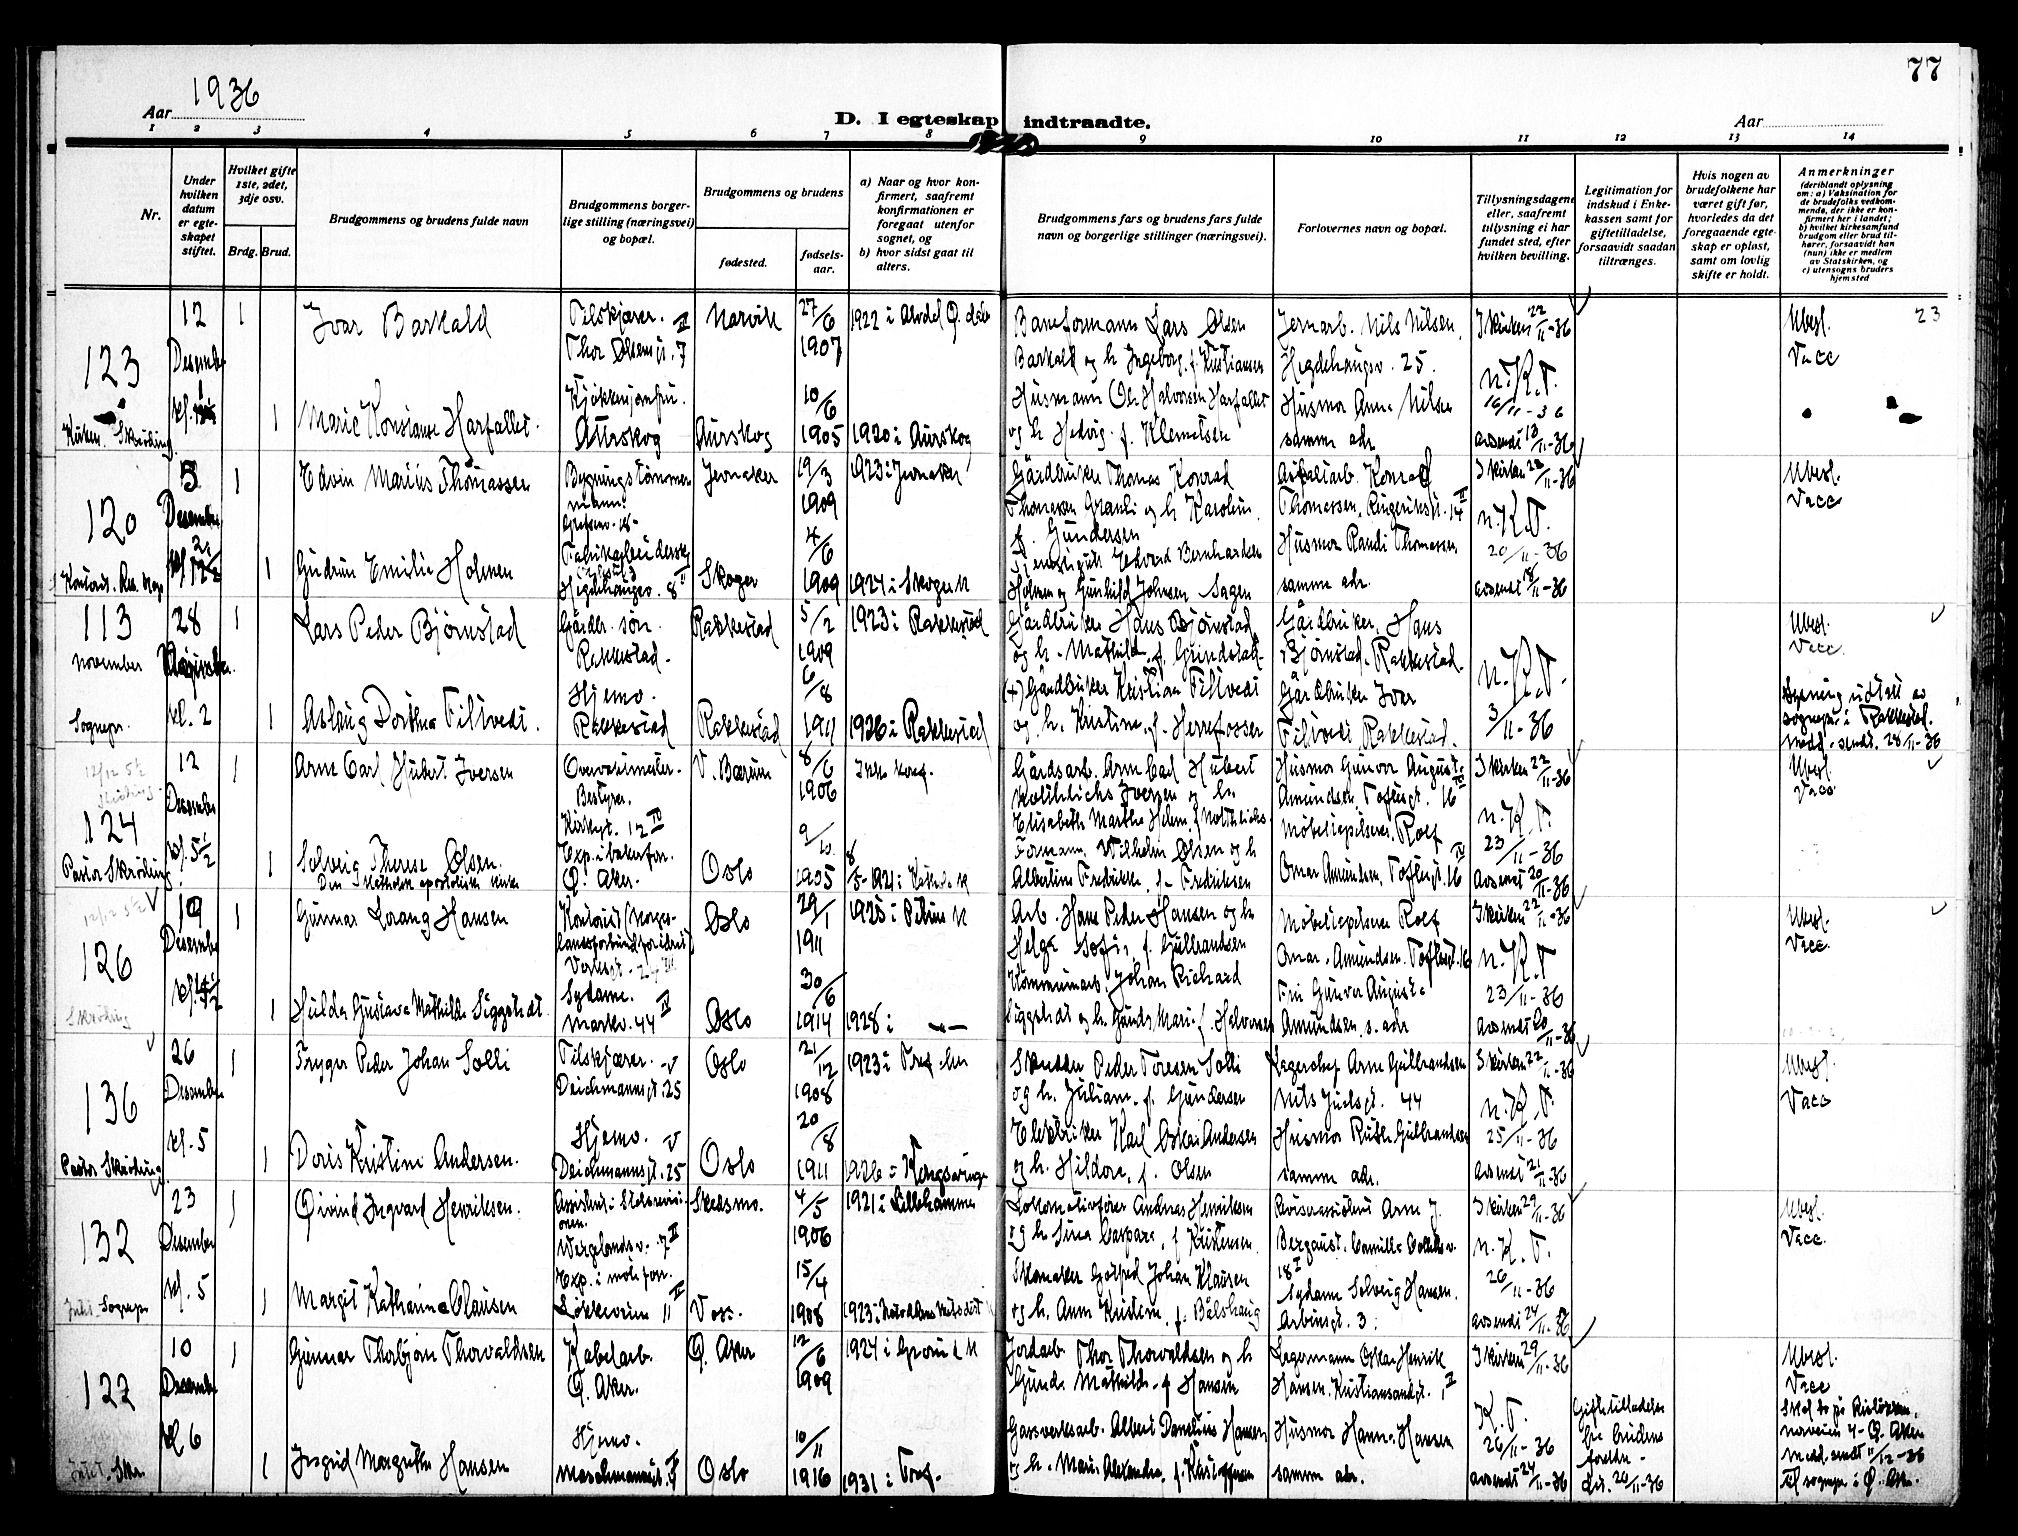 77
1936
Aar
D. I egteskap indtraadte.
Aar
1 2 3 4 5 6 7 8 9 10 11 12 13 14
Nr.
Under hvilken datum er egteskapet stiftet.
Hvilket gifte 1ste, 2det, 3dje osv.
Brdg. Brud.
Brudgommens og brudens fulde navn
Brudgommens borgerlige stilling (næringsvei) og bopæl.
Brudgommens og brudens
fødested.
fødselsaar.
a) Naar og hvor konfirmert, saafremt konfirmationen er foregaat utenfor sognet, og
b) hvor sidst gaat til alters.
Brudgommens fars og brudens fars fulde navn og borgerlige stillinger (næringsvei).
Forlovernes navn og bopæl.
Tillysningsdagene eller, saafremt tillysning ei har fundet sted, efter hvilken bevilling.
Legitimation for indskud i Enkekassen samt for giftetilladelse, forsaavidt saadan tiltrænges.
Hvis nogen av brudefolkene har været gift før, hvorledes da det foregaaende egteskap er opløst, samt om lovlig skifte er holdt.
Anmerkninger
(deriblandt oplysning om: a) Vaksination for de brudefolks vedkommende, der ikke er konfirmert her i landet; b) hvilket kirkesamfund brudgom eller brud tilhører, forsaavidt han (hun) ikke er medlem av Statskirken, og c) utensogns bruders hjemsted
123
12 Desember
1 Ivar Barkald
Tilskjærer. Thor Olsens gt. 7
Narvik
27/6 1907
1922 i Alvdal
Baneformann Lars Olsen Barkald og h. Ingeborg f. Kristiansen
Jernarb. Nils Nilsen, Hegdehaugsv. 25.
I kirken 22/11-36
n. K. T.
16/11-36
Ubesl. Vacc
23
1 Marie Konstanse Harfallet.
Aurskog
Aurskog
10/6 1905
1920 i Aurskog
Husmann Ole Halvorsen Harfallet og h. Hedvig f. Klemetsen
Husmor Anna Nilsen samme adr.
avsendt 13/11-36
120
5 Desember
1 Edvin Marius Thomassen
Bygningstømmermann.
Jevnaker
19/3 1909
1923 i Jevnaker
Gårdbruker Thomas Konrad Thomessen Granli og h. Karoline f. Gundersen
Asfaltarb. Konrad Thomessen, Ringeriksgt. 14
I kirken
n. K. T.
20/11-36
Ubesl. Vacc
1 Gudrun Emilie Holmen
Hegdehaugsv. 8
Skoger
4/6 1909
1924 i Skoger k
Edvard Bernhardsen Holmen og Gunhild Johnsen Sagen
Husmor Randi Thomessen samme adr.
avsendt 18/11-36
113
28 November
kl. 2
Sognepr.
1 Lars Peder Bjørnstad
Gårdbr. søn. Rakkestad.
Rakkestad
5/2 1909
1923 i Rakkestad
Gårdbruker Hans Bjørnstad og h. Mathilde f. Grindstad
Gårdbruker Hans Bjørnstad, Rakkestad.
n. K. T.
3/11-36
Ubesl. Vacc.
1 Aslaug Dorthea Tiltvedt.
Hjemv. Rakkestad
Rakkestad
6/8 1911
1926 i Rakkestad
(+) Gårdbruker Kristian Tiltvedt og h. Kristine f. Herrefosser
Gårdbruker Ivar Tiltvedt, Rakkestad.
sognepr. i Rakkestad.
medd. sendt. 28/11-36
12/12 5½
124
12 Desember
kl. 5½
Pastor Skrøding
1 Arne Carl Hubert Iversen
Bestyrer. Kirkegt. 12 IV
V. Bærum
8/6 1906
Ikke konf.
Gårdsarb. Arne Carl Hubert Iversen og h. Elisabeth Marthe Helene
Husmor Gunvor Auguste Amundsen Toftesgt. 16
I kirken 22/11-36
n. K. T.
23/11-36
Ubesl. Vacc
1 Solveig Therese Olsen.
Den katholsk apostoliske kirke
Ø. Aker.
Oslo
9/10 1905
Formann Wilhelm Olsen og h Albertine Fredrikke f. Fredriksen
Møbeltapetserer Rolf Omar Amundsen, Toftesgt. 16
avsendt 20/11-36
12/12 5½
126
19 Desember
Skrøding
1 Gunnar Lorang Hansen
Kontorist (Norges landsforbund for idrett)
Oslo
29/1 1911
1925 i Petrus k
Arb. Hans Peder Hansen og h. Helga Sofie f. Gulbrandsen
Møbeltapetserer Rolf Omar Amundsen. Toftesgt. 16
I kirken 22/11-36
n. K. T
23/11-36
Ubesl. Vacc.
1 Hulda Gustava Mathilde Siggstedt.
Sydame. Markv. 44 IV
Oslo
30/6 1914
1928 i —"—
Kommunearb. Johan Richard Siggstedt og h. Gunda Marie f. Halvorsen
Frk Gunvor Auguste Amundsen s. adr
avsendt 20/11-36
136
26 Desember
kl. 5
Pastor Skrøding
1 Trygve Peder Johan Solli
Tilskjærer. Deichmannsgt. 25
Oslo
21/12 1908
1923 i Tref. k
Skredder Peder Toresen Solli og h. Juliane f. Gundersen
Lagerchef Arne Gulbrandsen Nils Juelsgt. 44
I kirken 22/11-36
n. K. T.
25/11-36
Ubesl. Vacc
1 Doris Kristine Andersen.
Hjemv. Deichmannsgt. 25
Oslo
20/8 1911
1926 i Kongsvinger
Elektriker Karl Oskar Andersen og h. Hildora f. Olsen
Husmor Ruth Gulbrandsen samme adr.
avsendt 21/11-36
132
23 Desember
kl. 5
Sognepr
1 Øivind Ingvard Henriksen.
Wergelandsv. 7 II
Skedsmo.
4/5 1906
1921 i Lillehammer
Lokomotivfører Andreas Henriksen og h Sina Caspara f. Kristensen
Revisorassistent Arne J. Bergaust. Camilla Colletts v. 18 I
I kirken 29/11-36
n. K. T.
26/11-36
Ubesl. Vacc.
1 Margit Katharina Clausen
Løkkeveien 11
Voss.
15/4 1908
Skomaker Gotfred Johan Klausen og h. Anne Kristine f. Bålshaug
Sydame Solveig Hansen. Arbinsgt. 3.
avsendt 24/11-36
122
10 Desember
kl 6
1 Gunnar Thorbjørn Thorvaldsen
Kabelarb. Ø. Aker.
Ø. Aker
12/6 1909
1924 i Grorud k
Jordarb. Thor Thorvaldsen og h Gunda Mathilde f Hansen
Lagermann Oskar Henrik Hansen. Kristiansandgt. 1 II
I kirken 29/11-36
K. T.
26/11-36
Giftetilladelse fra brudens foreldre - dat. 20/11-36
Ubesl. Vacc
1 Ingrid Margrethe Hansen
Hjemv.
Oslo
10/11 1916
1931 i Tref.
Gassverksarb. Albert Danelius Hansen og h. Marie Alexandra f. Kristoffersen
Husmor Hanna Hansen samme adr.
avsendt 24/11-36
Skal bo på
medd. sendt 11/12-36 til sognepr. i Ø. Ak.